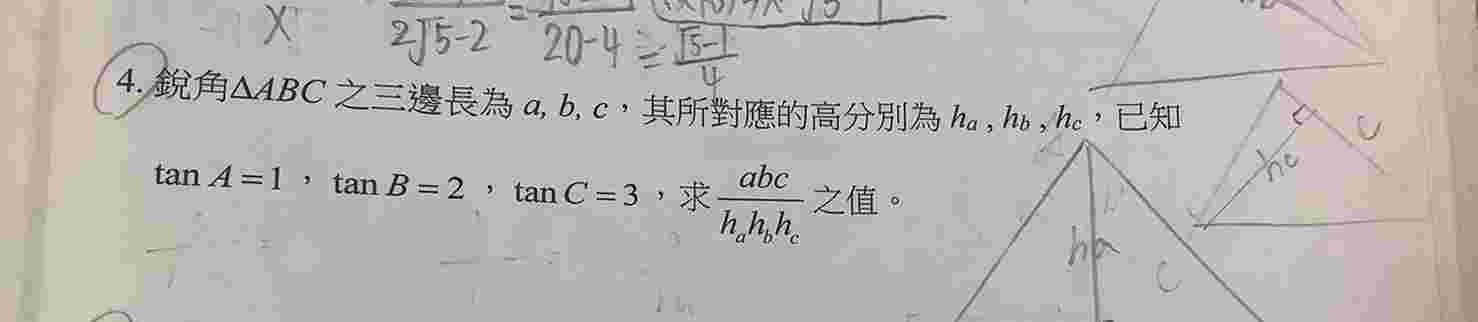 X 2√5-2 = 20-4 = √5-1
4
4. 銳角ΔABC 之三邊長為 a, b, c，其所對應的高分別為 hₐ , h_b , h_c，已知
tan A = 1 ， tan B = 2 ， tan C = 3 ，求 abc/(hₐh_bh_c) 之值。
hc c
ha c